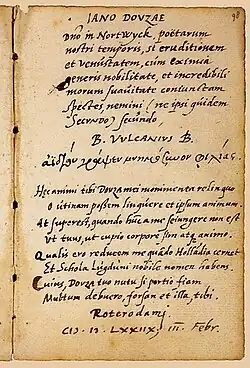 98
IANO DOVZAE
Dño in Nortwyck, poëtarum
nostri temporis, si eruditionem
et venustatem, cùm eximia
generis nobilitate, et incredibili
morum suauitate coniunctam
spectes nemini (ne ipsi quidem
SECVNDO) secundo.
B. VVLCANIVS B.
ἀϊδίου μνημόσυνον φιλίας.
Hec animi tibi Douza mei monimenta relinquo
O utinam possem linquere et ipsum animum.
At superest, quando hùc a me seiungere non est
Vt tuus, ut cupio corpore sim atq; animo.
Qualis ero reducem me quãdo Hollãdia cernet
Et Schola Lugduni nobile nomen habens.
Cuius, Douza tuo nutu si portio fiam
Multum debuero, forsan et illa, tibi.
Roterodami.
CIↃ. IↃ. LXXIIX. III. Febr.